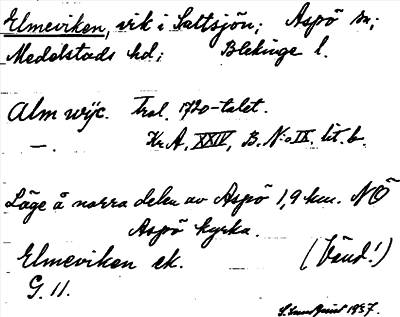 Elmeviken, vik i Saltsjön; Aspö sn;
Medelstads hd; Blekinge l.
Alm wijc. Trol. 1720-talet.
—. Kr A, XXIV, B. N:o IX. lit. b.
Läge å norra delen av Aspö 1,9 km. NÖ
Aspö kyrka.
Elmeviken ek. (Vänd!)
G. 11.
1937.